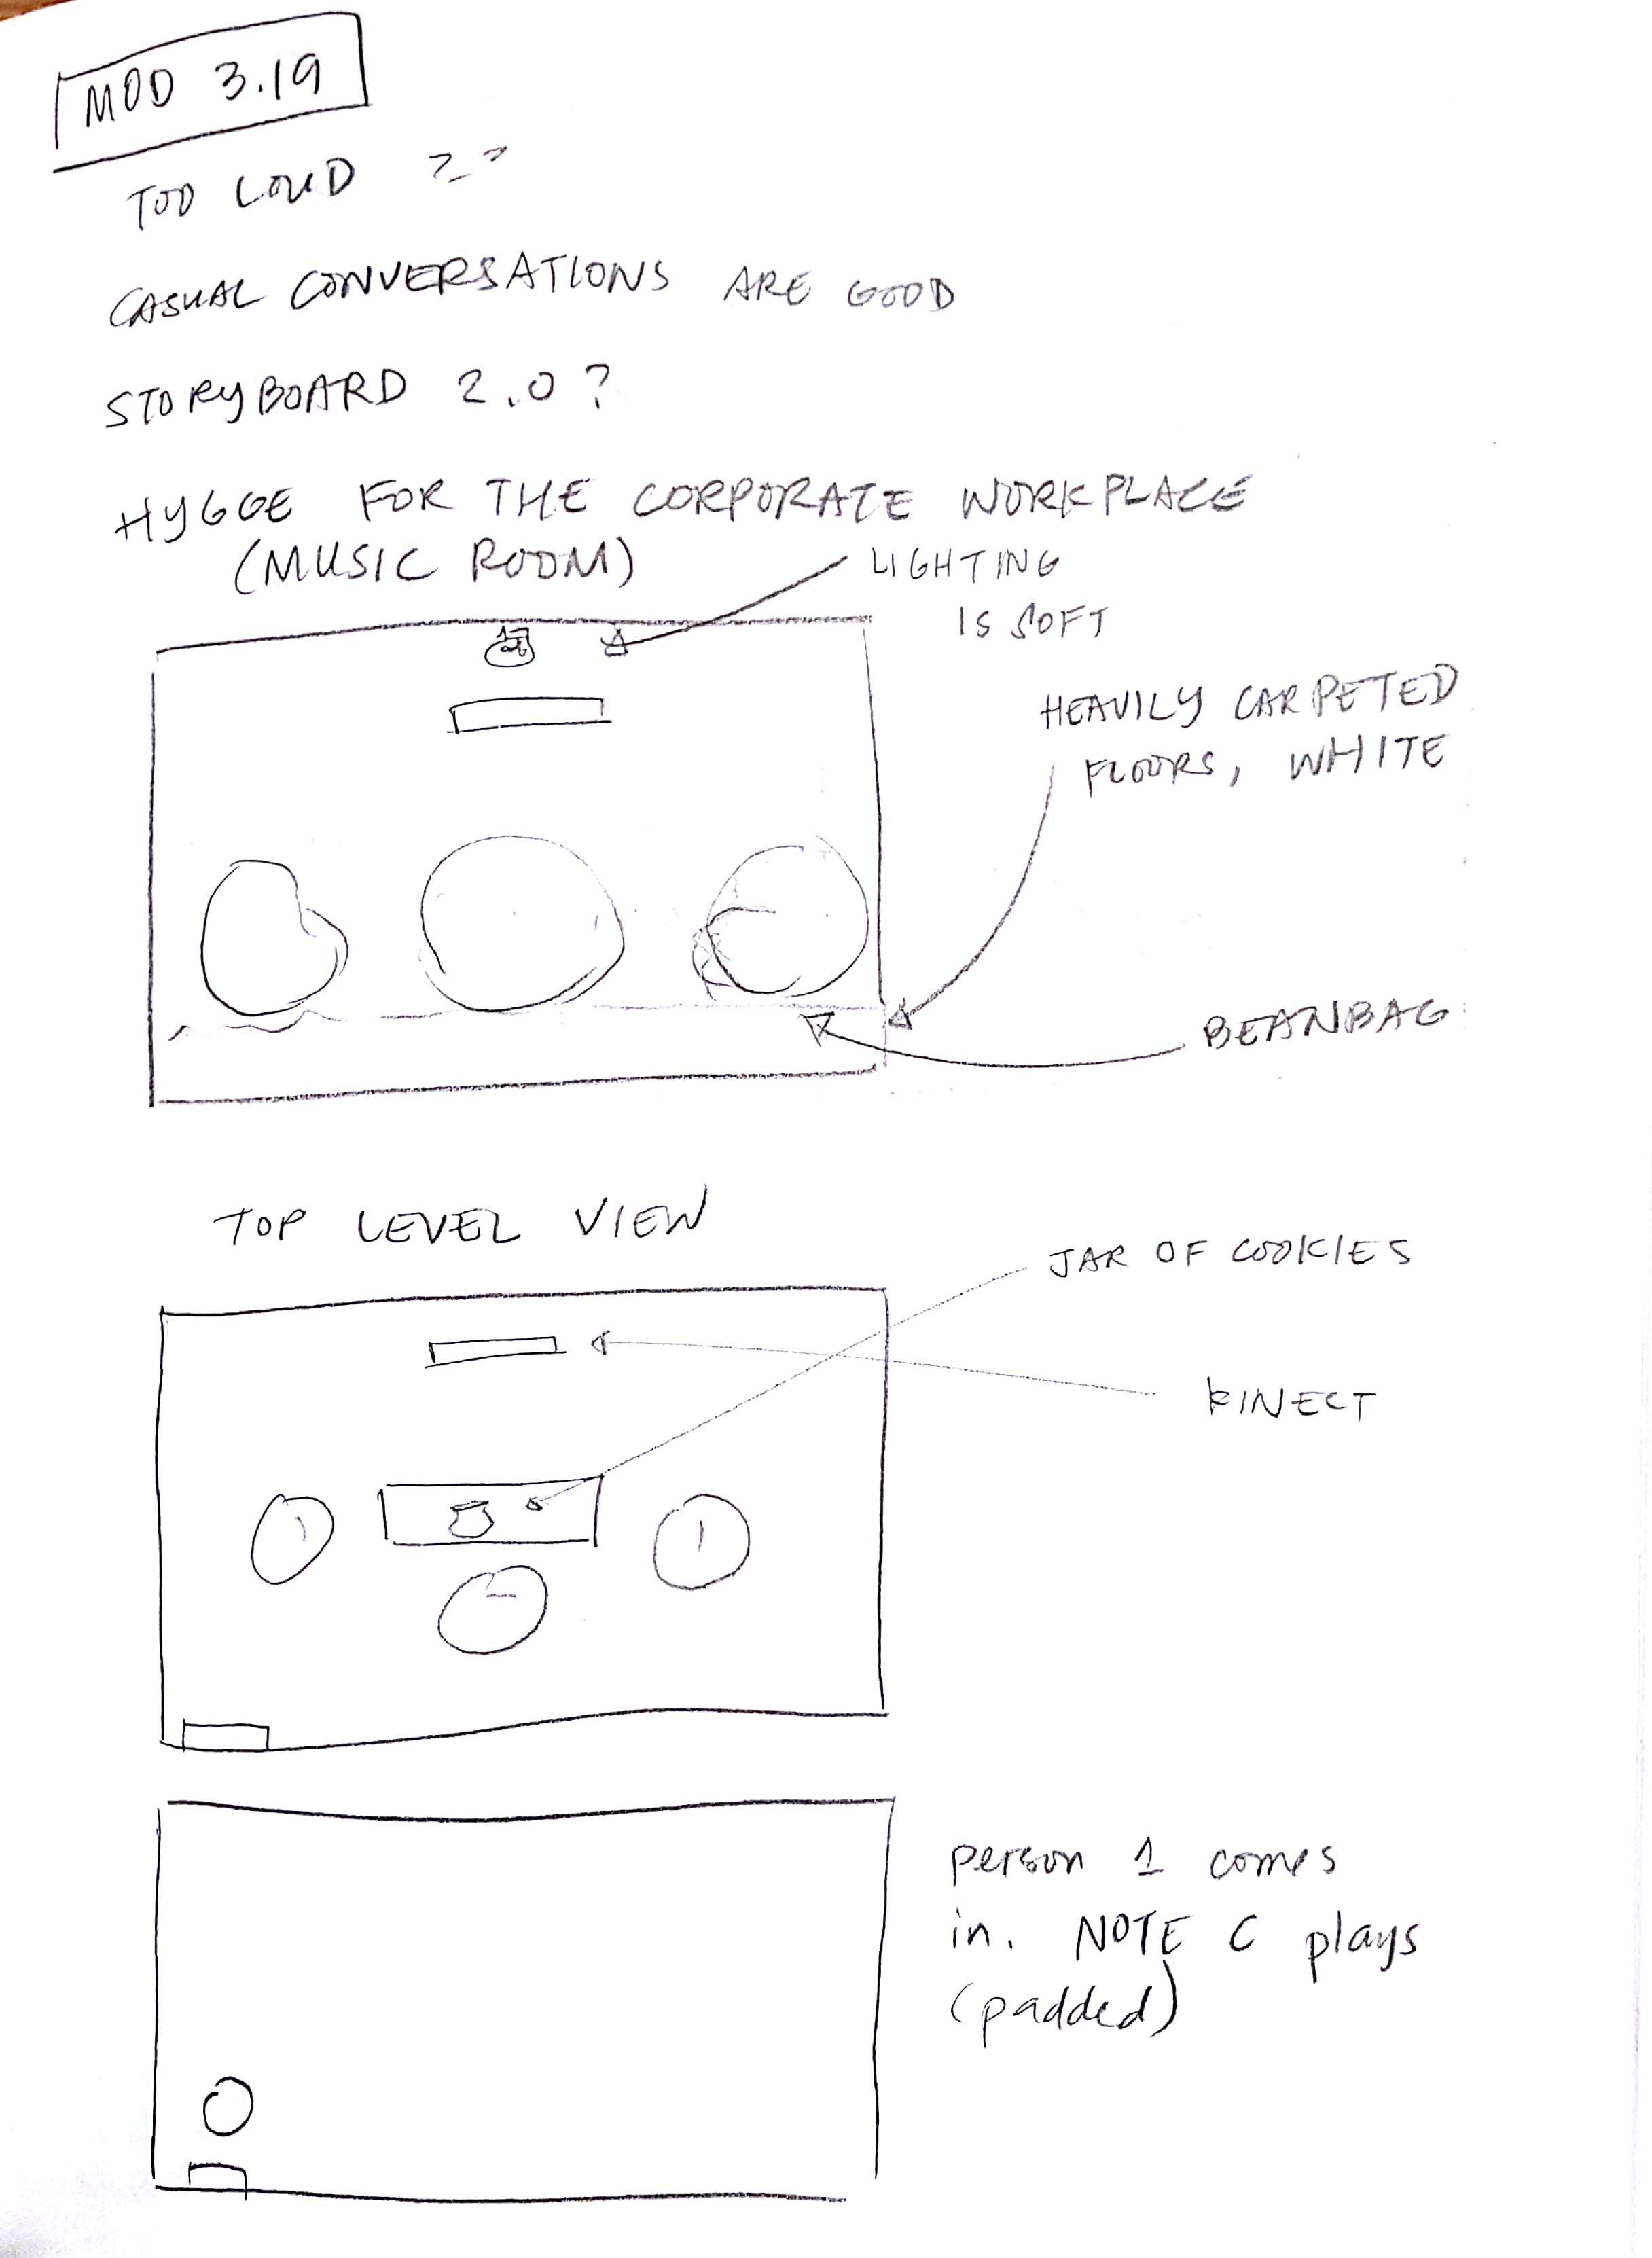 MOD 3.19
TOO LOUD ??
CASUAL CONVERSATIONS ARE GOOD
STORYBOARD 2.0?
HYGGE FOR THE CORPORATE WORKPLACE
(MUSIC ROOM)
LIGHTING
IS SOFT
HEAVILY CARPETED
FLOORS, WHITE
BEANBAG
TOP LEVEL VIEW
JAR OF COOKIES
KINECT
person 1 comes
in. NOTE C plays
(padded)